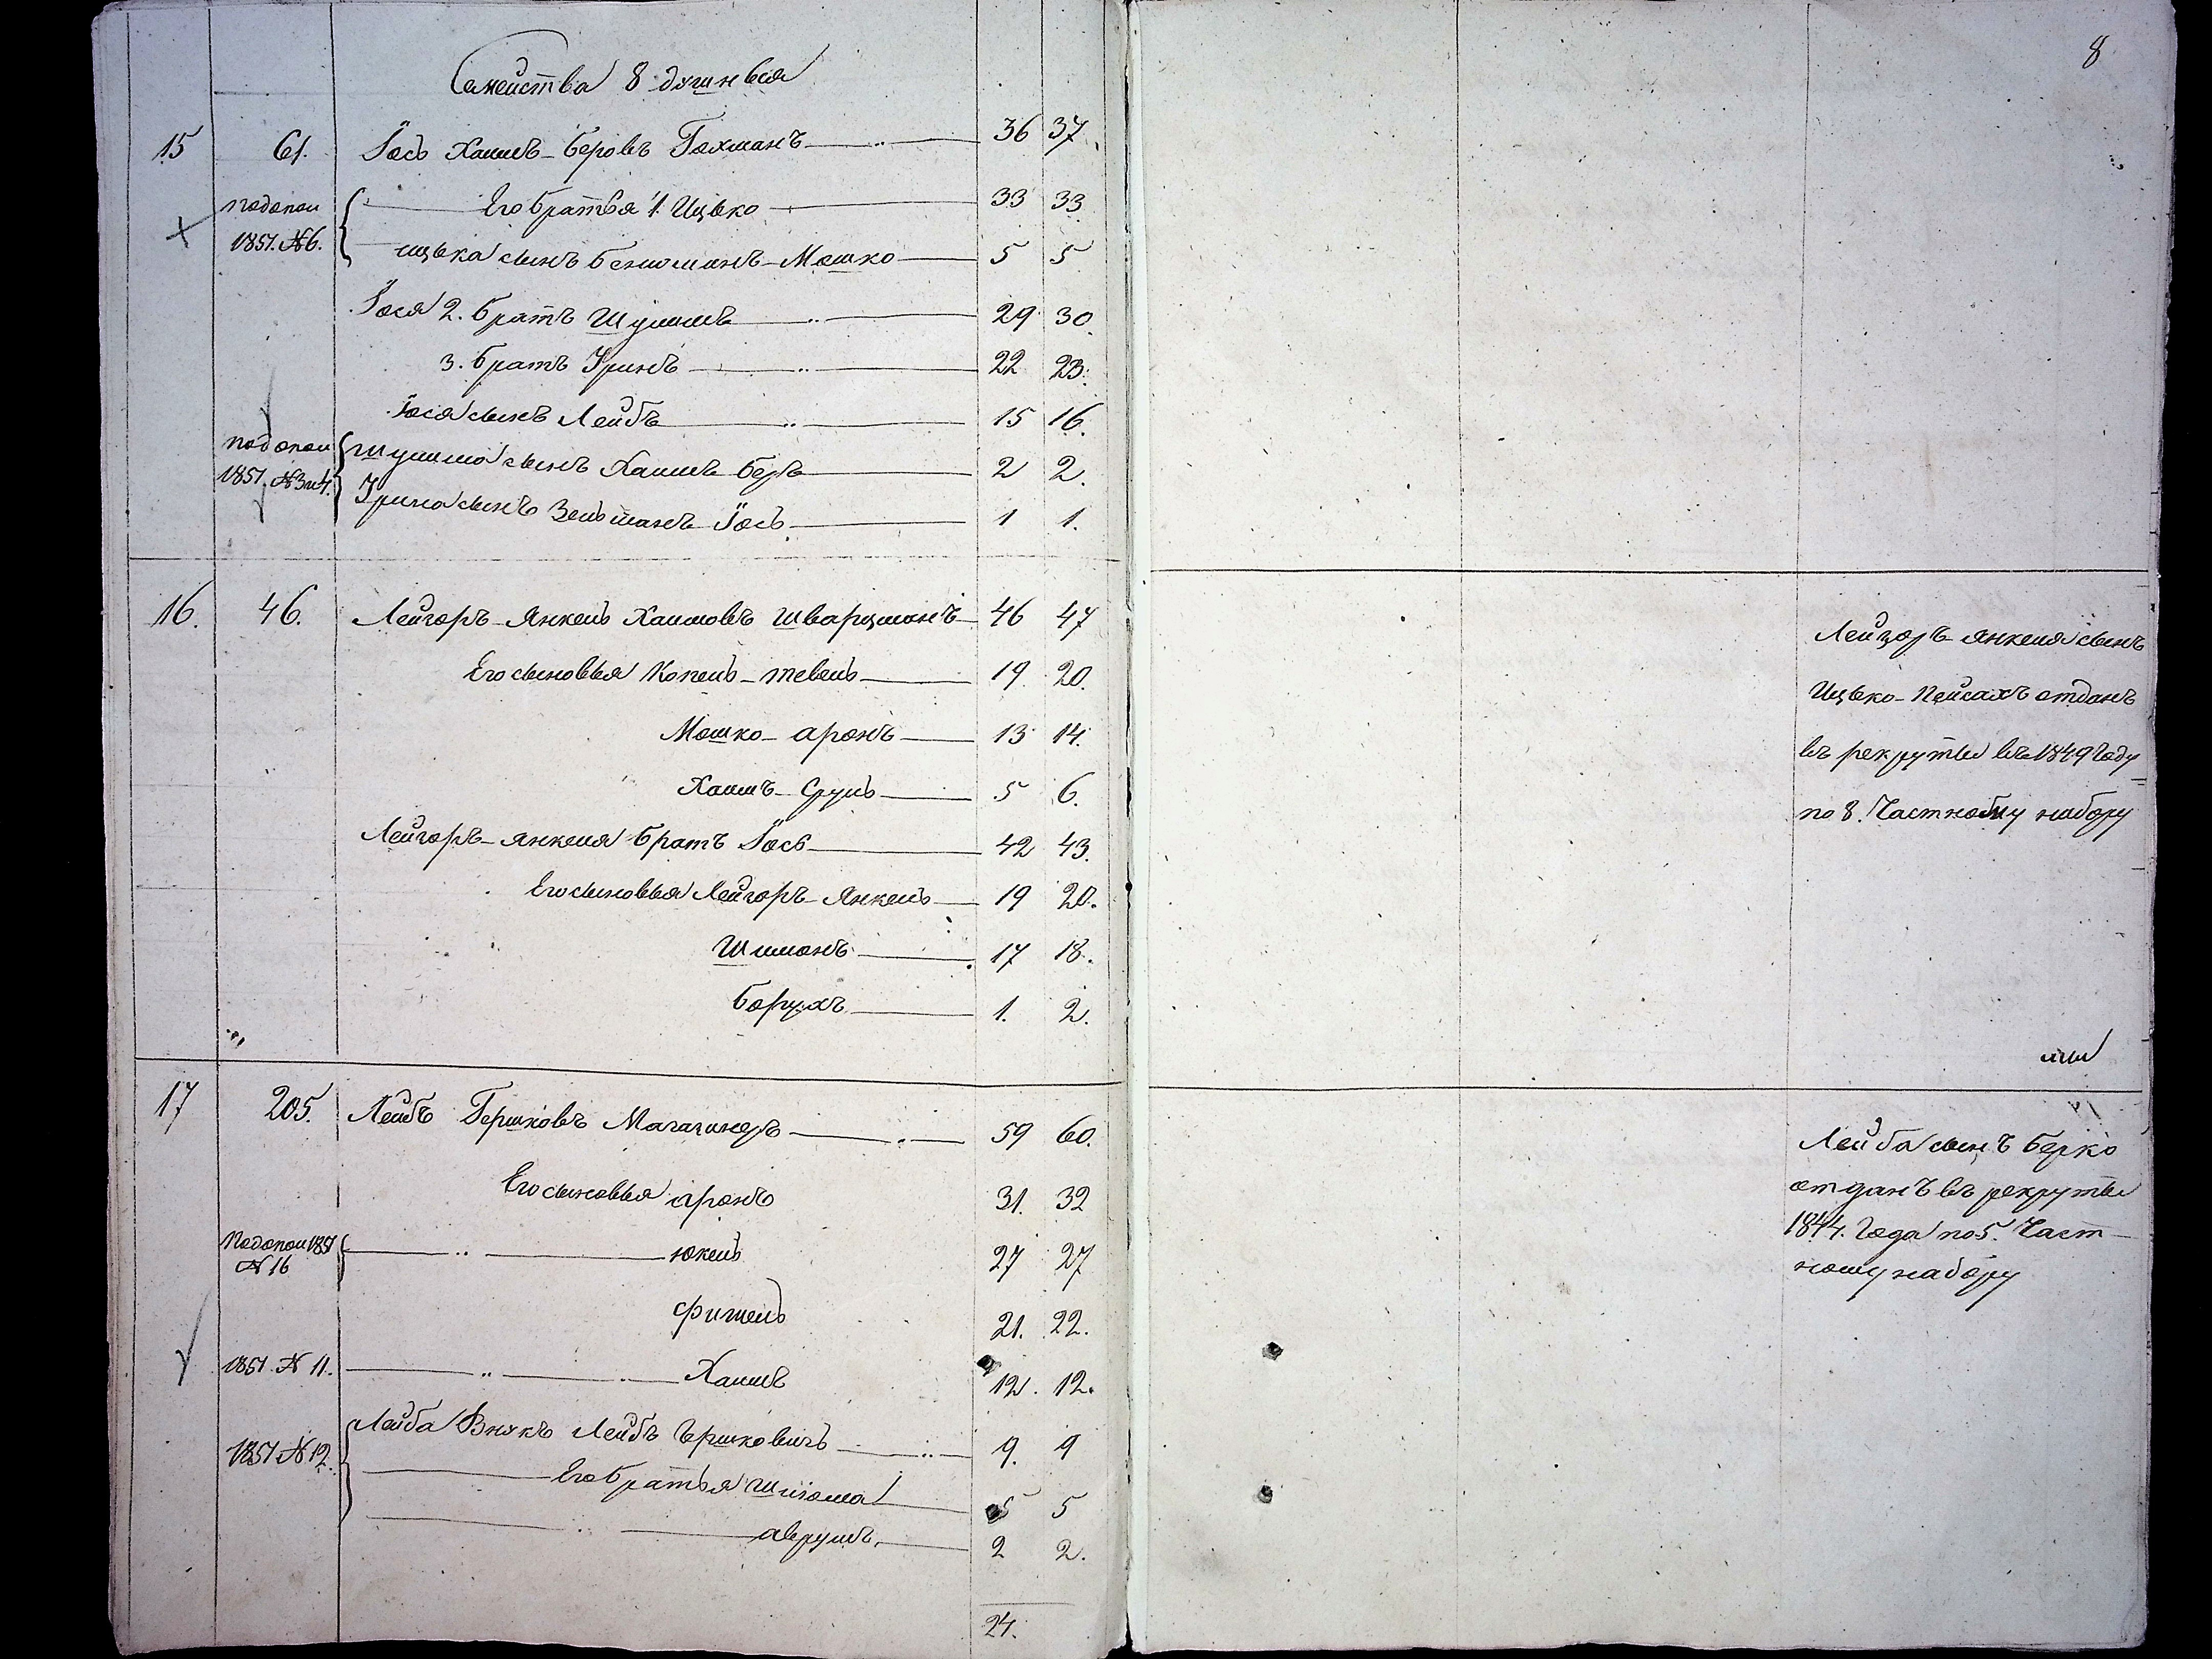 8
Семейства 8 душныя
15 61. Іось Хаимъ-Беровъ Гохманъ 36 37
Его братья 1. Ицько 33 33
1851. №6.
ицька сынъ Бениоминъ-Мошко 5 5
Іося 2. братъ Шулимъ 29 30
3. братъ Уринъ 22 23.
Іося сынъ Лейбъ 15 16.
Шулима сынъ Хаимъ Беръ 2 2.
1851. №3и4.
Урина сынъ Зельманъ Іось 1 1.
16. 46. Лейзоръ-Янкель Хаимовъ Шварцманъ 46 47
Его сыновья Копель-тевель 19 20.
Мошко-аронъ 13 14.
Хаимъ-Сруль 5 6.
Лейзоръ-янкеля братъ Іось 42 43.
Его сыновья Лейзоръ-Янкель 19 20.
Шимонъ 17 18.
Борухъ 1. 2.
Лейзоръ-янкеля сынъ
Ицько-Пейсахъ отданъ
въ рекруты въ 1849 году
по 8. Частному набору
17 205. Лейбъ Гершковъ Магазинеръ 59 60.
Его сыновья аронъ 31. 32
1851
N 16
юкель 27 27
фишель 21. 22.
1851 N 11. Хаимъ 12. 12.
Лейба Внукъ Лейбъ Іершковичъ 9. 9
1851 N 12.
Его братья Шлиома 5 5
аврумъ, 2 2.
24.
Лейба сынъ Берко
отданъ въ рекруты
1844. Года по 5. Част-
ному набору